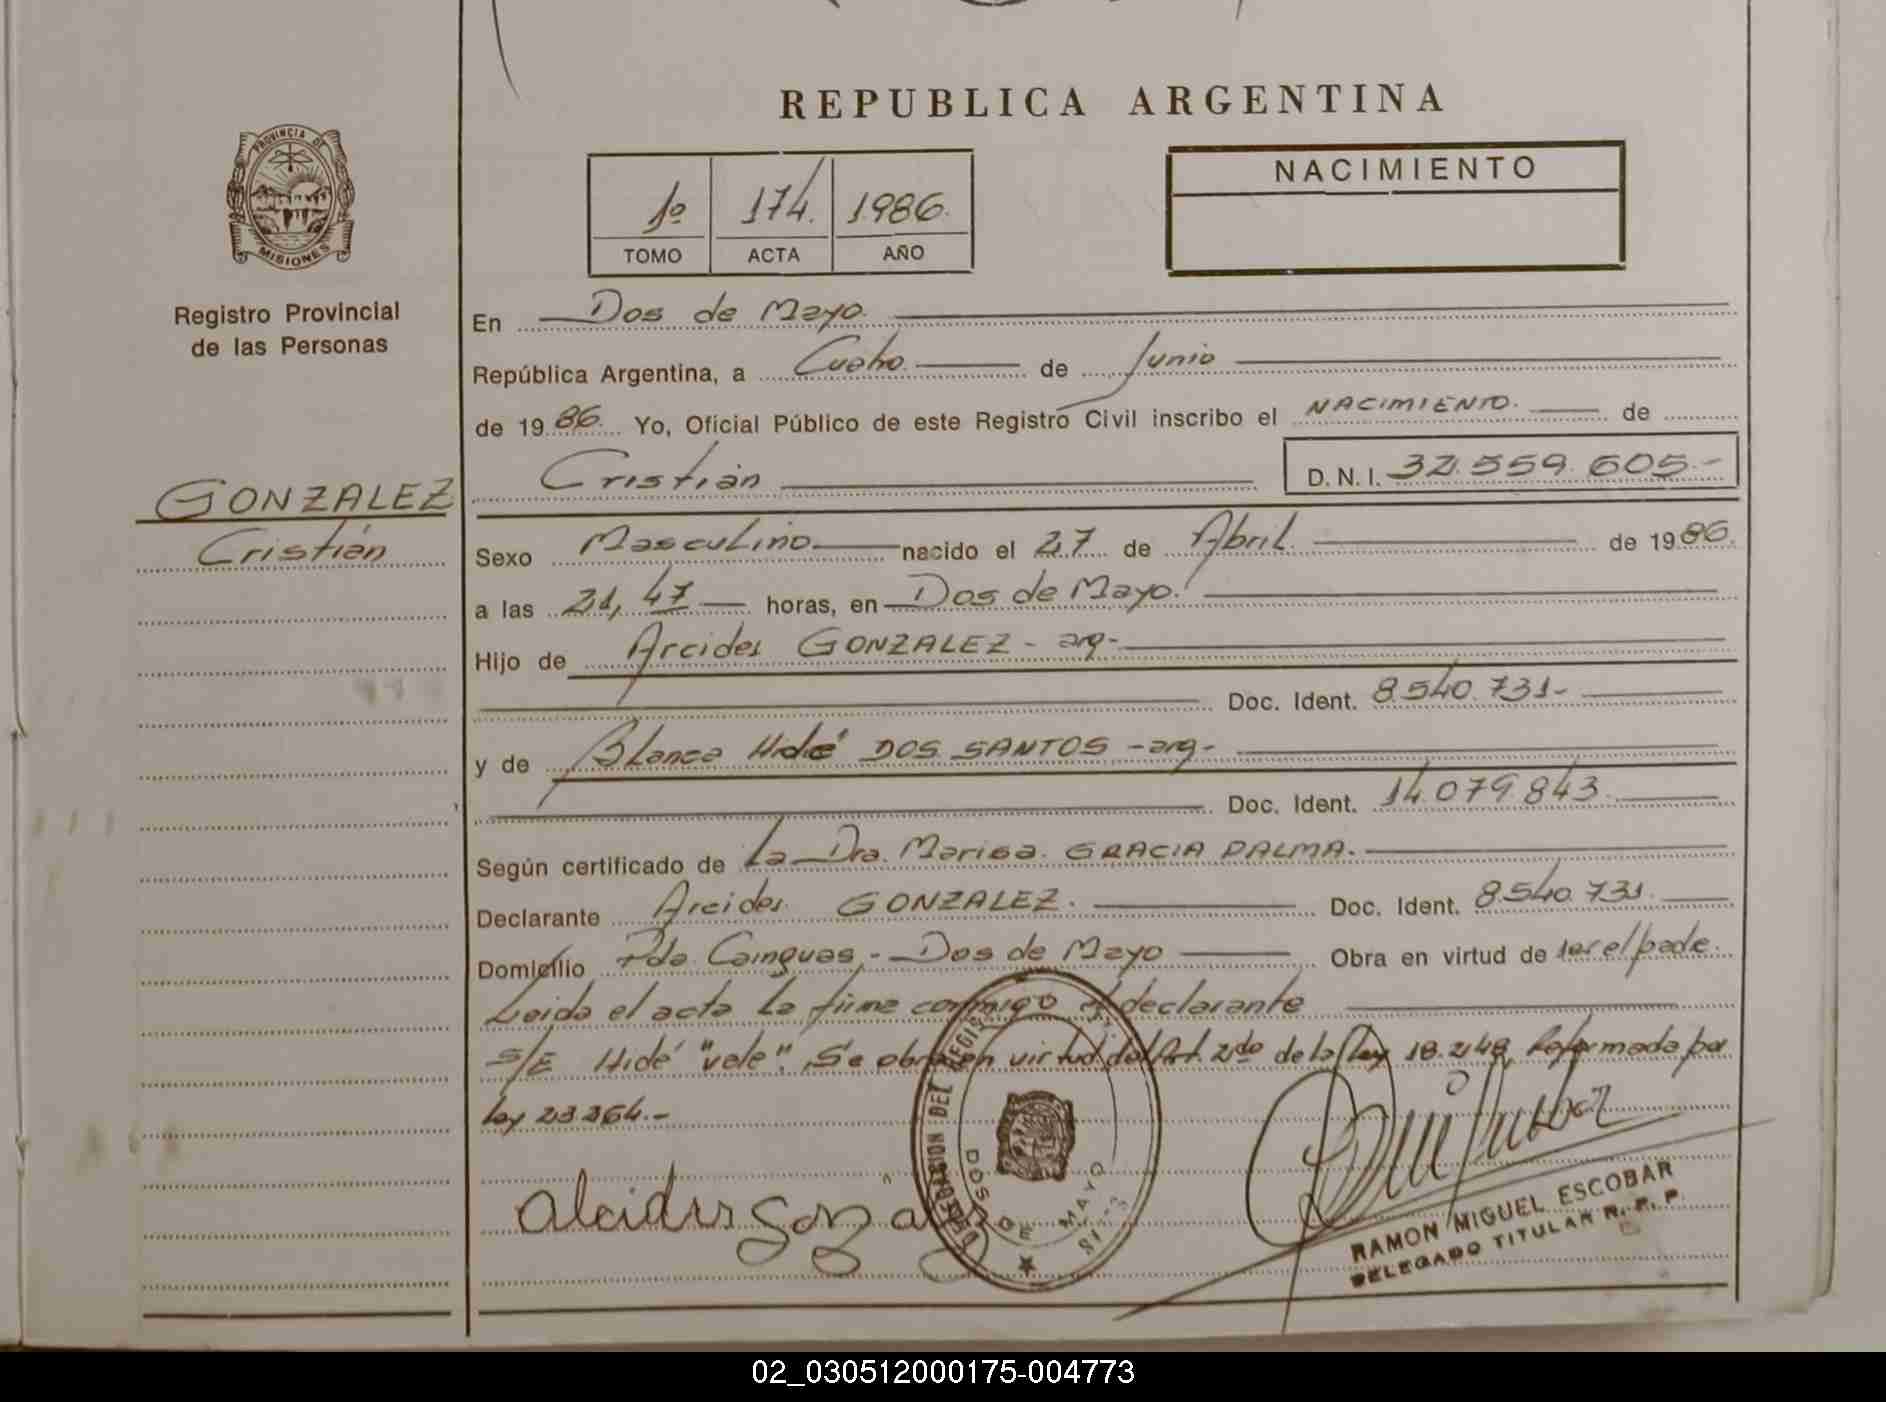 REPUBLICA ARGENTINA
PROVINCIA DE
MISIONES
Registro Provincial
de las Personas
1º 174. 1986.
TOMO ACTA AÑO
NACIMIENTO
En Dos de Mayo.
República Argentina, a Cuatro. de Junio
de 1986. Yo, Oficial Público de este Registro Civil inscribo el NACIMIENTO. de
Cristián D. N. I. 32.559.605.-
GONZALEZ
Cristián
Sexo Masculino nacido el 27 de Abril. de 1986.
a las 21,47 horas, en Dos de Mayo.
Hijo de Arcides GONZALEZ - arg-
Doc. Ident. 8.540.731-
y de Blanca Hidé DOS SANTOS - arg-
Doc. Ident. 14.079.843.
Según certificado de La Dra. Marisa. GRACIA PALMA.
Declarante Arcides GONZALEZ. Doc. Ident. 8.540.731.
Domicilio Pda. Cainguas, - Dos de Mayo Obra en virtud de ser el padre.
Leída el acta la firma conmigo el declarante
S/E Hidé "vale". Se obra en virtud del Art. 2do de la Ley 18.248, Reformada por
Ley 23.264.-
DELEGACION DEL REGIS
DOS DE MAYO
alcides gonzalez
RAMON MIGUEL ESCOBAR
DELEGADO TITULAR R. P. P.
02_030512000175-004773